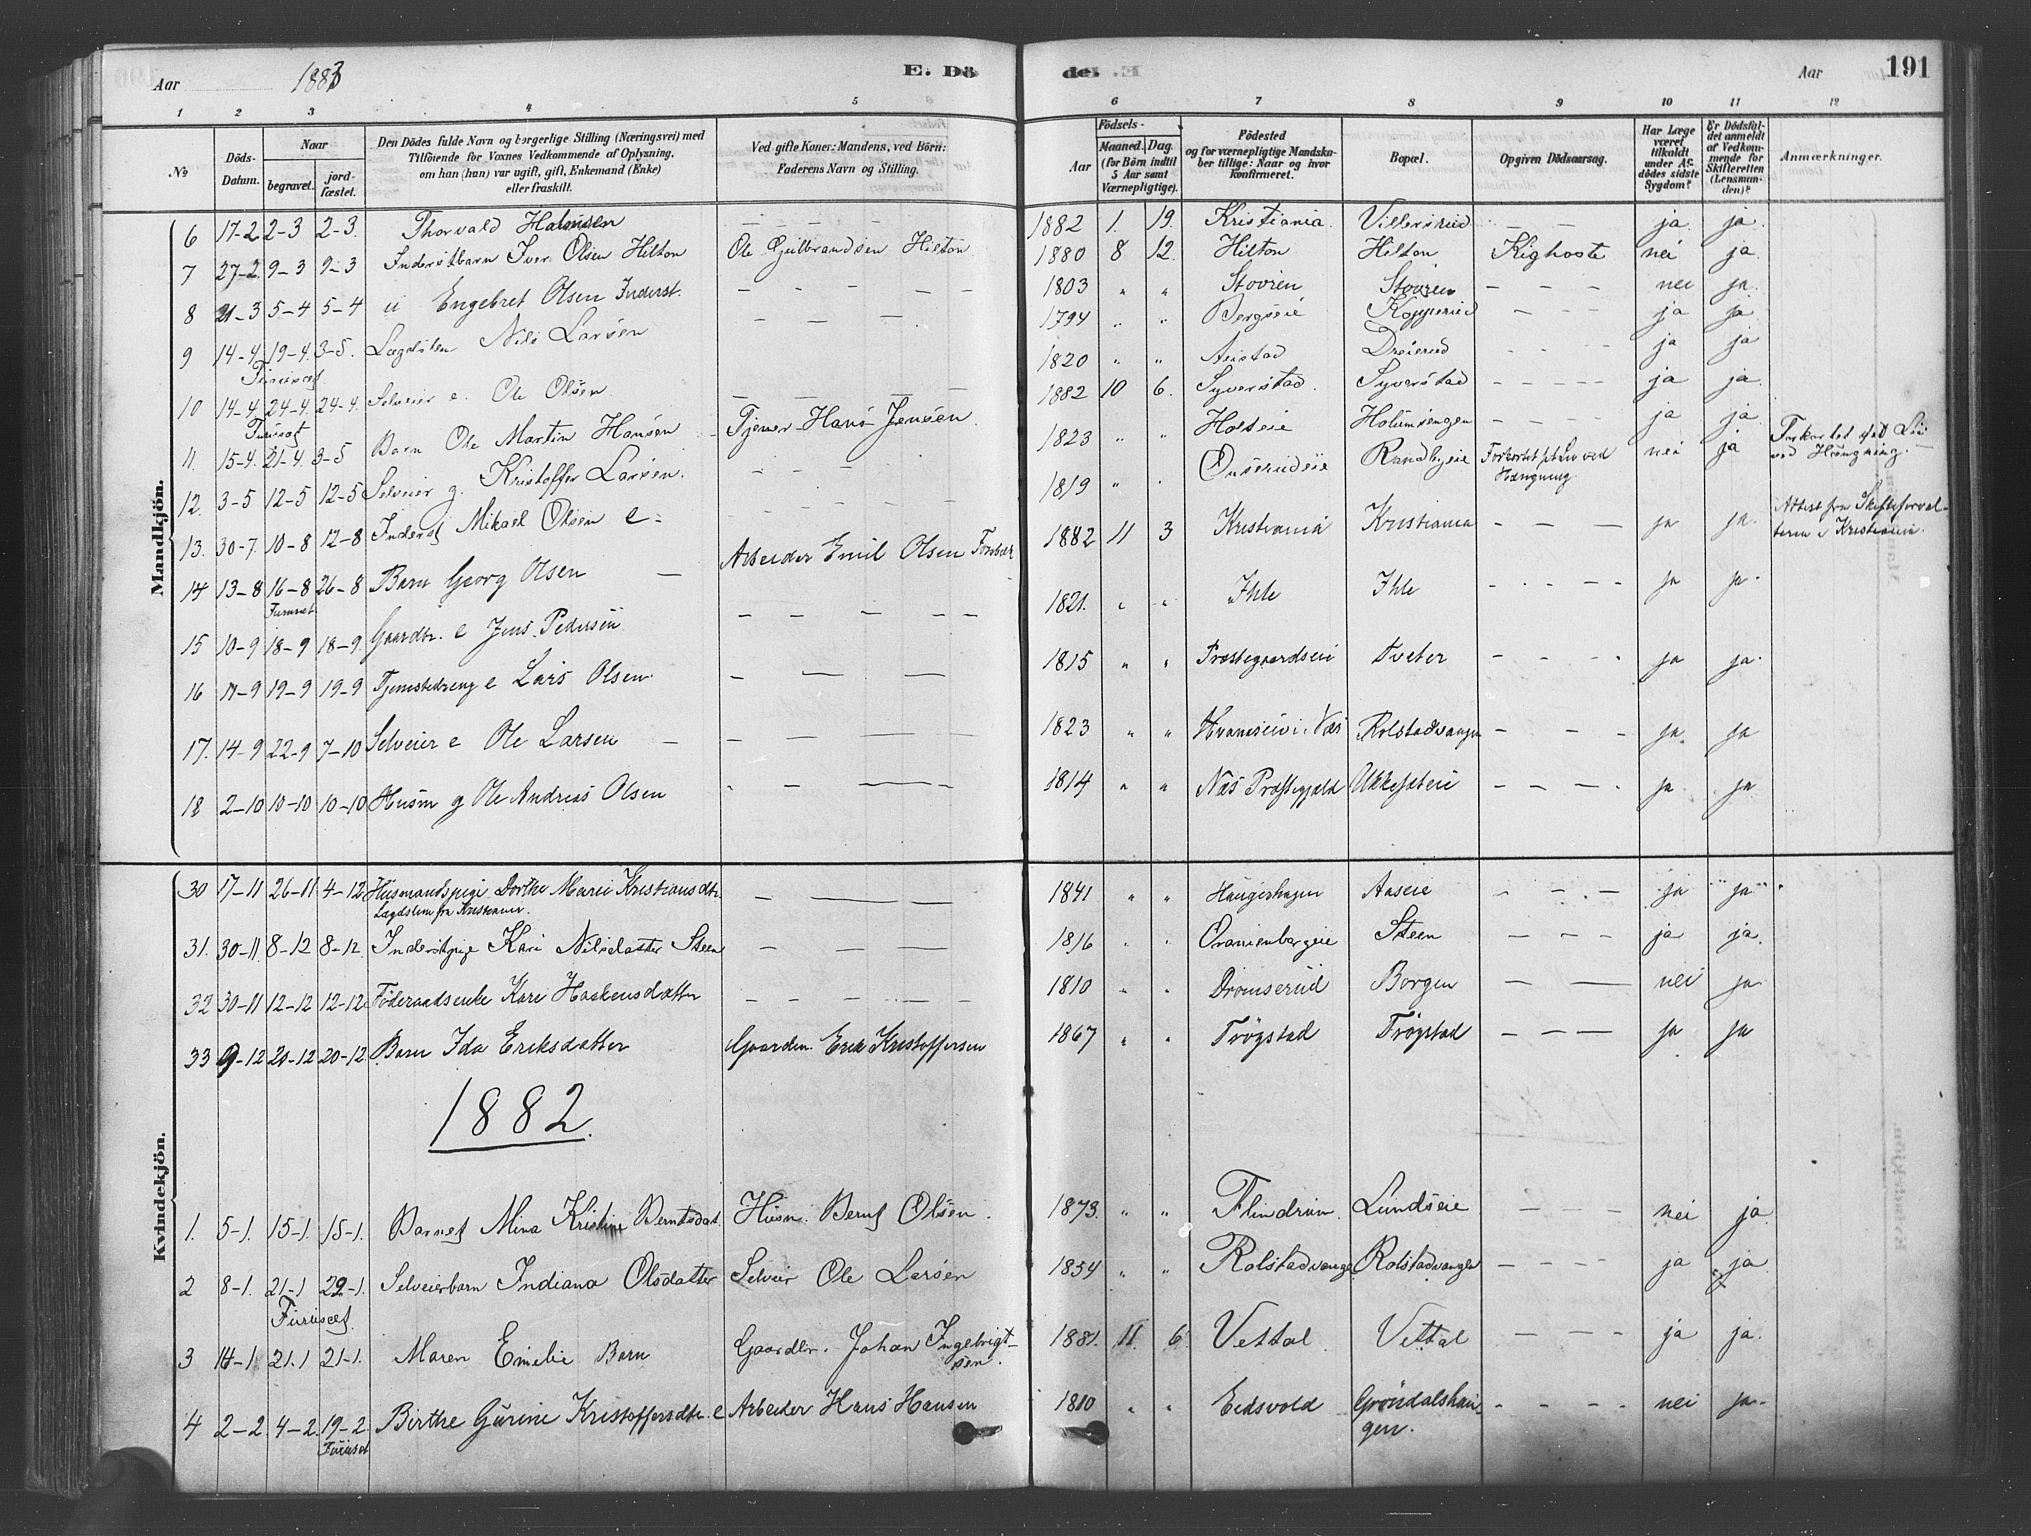 Aar 1883 E. Dö
de. Aar 191
1 2 3 4 5
6 7 8 9 10 11 12
No
Döds-Datum.
Naar
begravet.
jordfæstet.
Den Dödes fulde Navn og borgerlige Stilling (Næringsvei) med
Tilföiende for Voxnes Vedkommende af Oplysning,
om han (hun) var ugift, gift, Enkemand (Enke)
eller fraskilt.
Ved gifte Koner: Mandens, ved Börn:
Faderens Navn og Stilling.
Födsels-
Aar
Maaned. Dag.
(for Börn indtil
5 Aar samt
Værnepligtige).
Födested
og for værnepligtige Mandskaber tillige: Naar og hvor
konfirmeret.
Bopæl.
Opgiven Dödsaarsag.
Har Læge
været
tilkaldt
under Afdödes sidste
Sygdom?
Er Dödsfaldet anmeldt
af Vedkommende for
Skifteretten
(Lensmanden)?
Anmærkninger.
Mandkjön.
6 17-2 2-3 2-3 Thorvald Halvorsen — — — —
1882 1. 19. Kristiania Villersrud — — ja ja.
7 27-2 9-3 9-3 Inderstbarn Iver Olsen Hilton Ole Gulbrandsen Hilton
1880 8 12. Hilton Hilton Kighoste nei ja
8 21-3 5-4 5-4 Engebret Olsen Inderst. — — — — —
1803 " " Stovren Stovren — — — nei ja.
9 14-4 19-4 3-5. Lægdslem Nils Larsen — — —
Furuset
1794 " " Bergseie Kopperud — — — ja ja
10 14-4 24-4. 24-4. Selveier e. Ole Olsen — — — —
Furuset
1820 " " Aristad Dreierud — — — ja ja
11. 15-4. 21-4. 3-5 Barn Ole Martin Hansen Tjener Hans Jensen
1882 10 6. Syverstad. Syverstad — — — — ja ja.
12. 3-5 12-5 12-5 Selveier g. Kristoffer Larsen. — — —
1823 " " Holteie Holumsengen — — — ja ja
13. 30-7. 10-8 12-8 Inderst Mikael Olsen e — — — —
1819 " " Onsrudeie Randbyeie Forkortet sit Liv ved
Hængning nei ja Forkortet sit Liv
ved Hængning.
14 13-8 16-8 26-8 Barn Georg Olsen — Arbeider Emil Olsen
Furuset
1882 11 3 Kristiania Kristiania — — — ja ja Attest fra Skifteforvalteren i Kristiania.
15 10-9 18-9 18-9. Gaardbr. e Jens Pedersen — — — — —
1821. " " Ihle Ihle — — — — ja ja.
16 11-9 19-9 19-9 Tjenestedreng e Lars Olsen. — — —
1815 " " Præstegaardseie Tveter — — — — ja ja.
17. 14-9 22-9 7-10 Selveier e Ole Larsen — — — — —
1823 " " Hvamseie i Næs Rolstadvangen — — — ja. ja
18 2-10 10-10 10-10 Husm g Ole Andreas Olsen — — — —
1814 " " Næs Præstegjæld Ukkestadeie — — — — ja ja
Kvindekjön.
30 17-11 26-11 4-12 Husmandspige Dorthe Marie Kristiansdtr. — — —
Lægdslem fra Kristiania.
1841 " " Haugerhagen Aaseie — — — ja ja
31. 30-11. 8-12 8-12 Inderstpige Kari Nilsdatter Steen — — — —
1816 " " Oranienborgeie Steen — — — ja ja.
32 30-11 12-12 12-12 Föderaadsenke Kari Haakensdatter — — — — —
1810 " " Dromserud Borgen — — nei ja
33 9-12 20-12 20-12 Barn Ida Eriksdatter Gaardm. Erik Kristoffersen
1867 " " Trögstad Trögstad — — — ja ja
1882.
1. 5-1. 15-1. 15-1. Barnet Mina Kristine Berntsdat. Husm. Bernt Olsen.
1873. " " Flindrum. Lundseie — — — nei ja
2 8-1. 21-1 22-1. Selveierbarn Indiana Olsdatter Selveier Ole Larsen
Furuset
1854 " " Rolstadvangen Rolstadvangen — — — — ja ja
3 14-1 21-1 21-1. Maren Emelie Barn Gaardbr. Johan Ingebrigtsen.
1881. 11. 6 Vettal Vettal — — — ja ja.
4 2-2. 4-2. 19-2. Birthe Gurine Kristoffersdtr. e Arbeider Hans Hansen
Furuset
1810 " " Eidsvold Gröndalshaugen. — — — nei ja